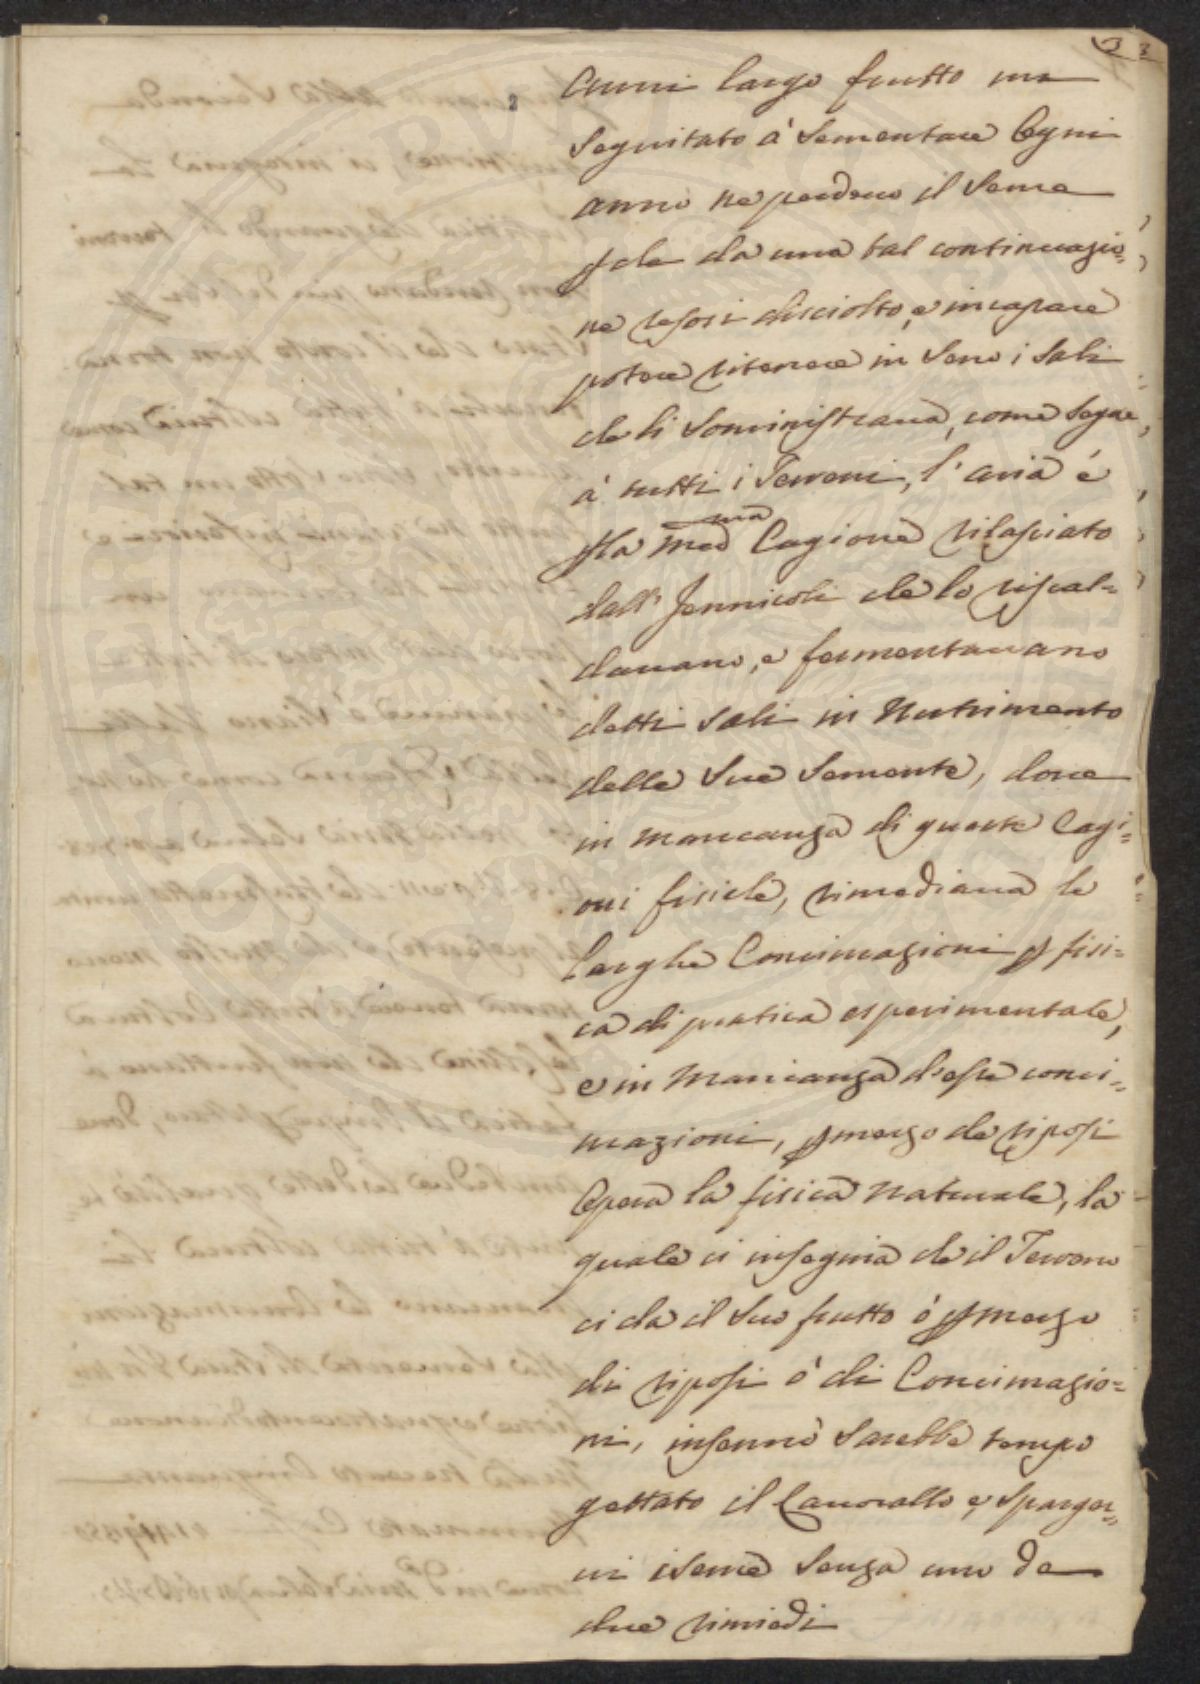 3 3
anni largo frutto ma
seguitato à sementare Ogni
anno ne perdeno il seme
p che da una tal continuazio=
ne resosi disciolto, e incapace
potere ritenere in seno i sali
che li somministrava, come segue
à tutti i Terreni, l'aria é
p la med.ma Cagione rilasciato
dall' Jennicoli che lo riscal=
davano, e fermentavano
detti sali in Nutrimento
delle sue semente, dove
in mancanza di queste Cagi=
oni fisiche, rimediava le
larghe Concimazioni p fisi=
ca di pratica esperimentale,
e in Mancanza d'esse conci=
mazioni, p mezzo de riposi
Opera la fisica Naturale, la
quale ci insegnia che il Terreno
ci da il suo frutto ó p mezzo
di riposi ó di Concimazio=
ni, insennò sarebbe tempo
gettato il Lavorallo e, sparger=
vi i seme senza uno de
due rimiedi